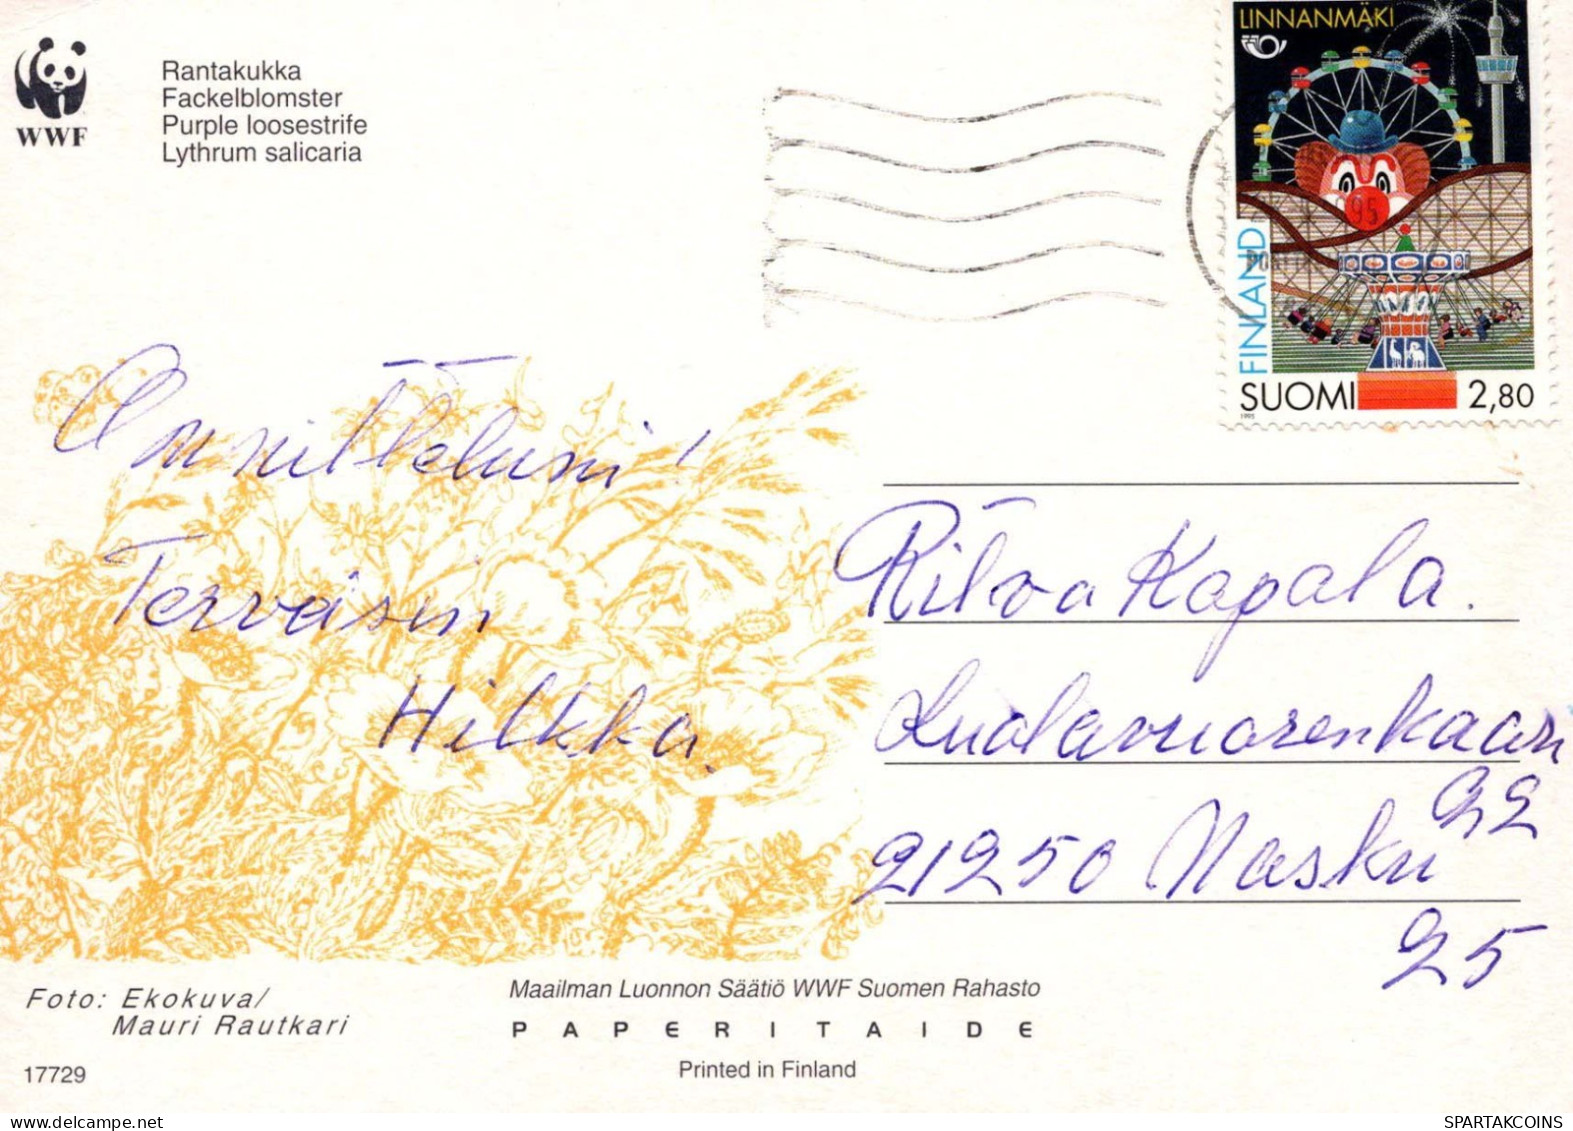 WWF
Rantakukka
Fackelblomster
Purple loosestrife
Lythrum salicaria
LINNANMÄKI
FINLAND
SUOMI 2,80
1995
Onnittelun!
Terveisin
Hilkka.
Ritva Kapala.
92
21250 Masku
25
Foto: Ekokuva/
Mauri Rautkari
Maailman Luonnon Säätiö WWF Suomen Rahasto
PAPERITAIDE
Printed in Finland
17729
SPARTAKCOINS